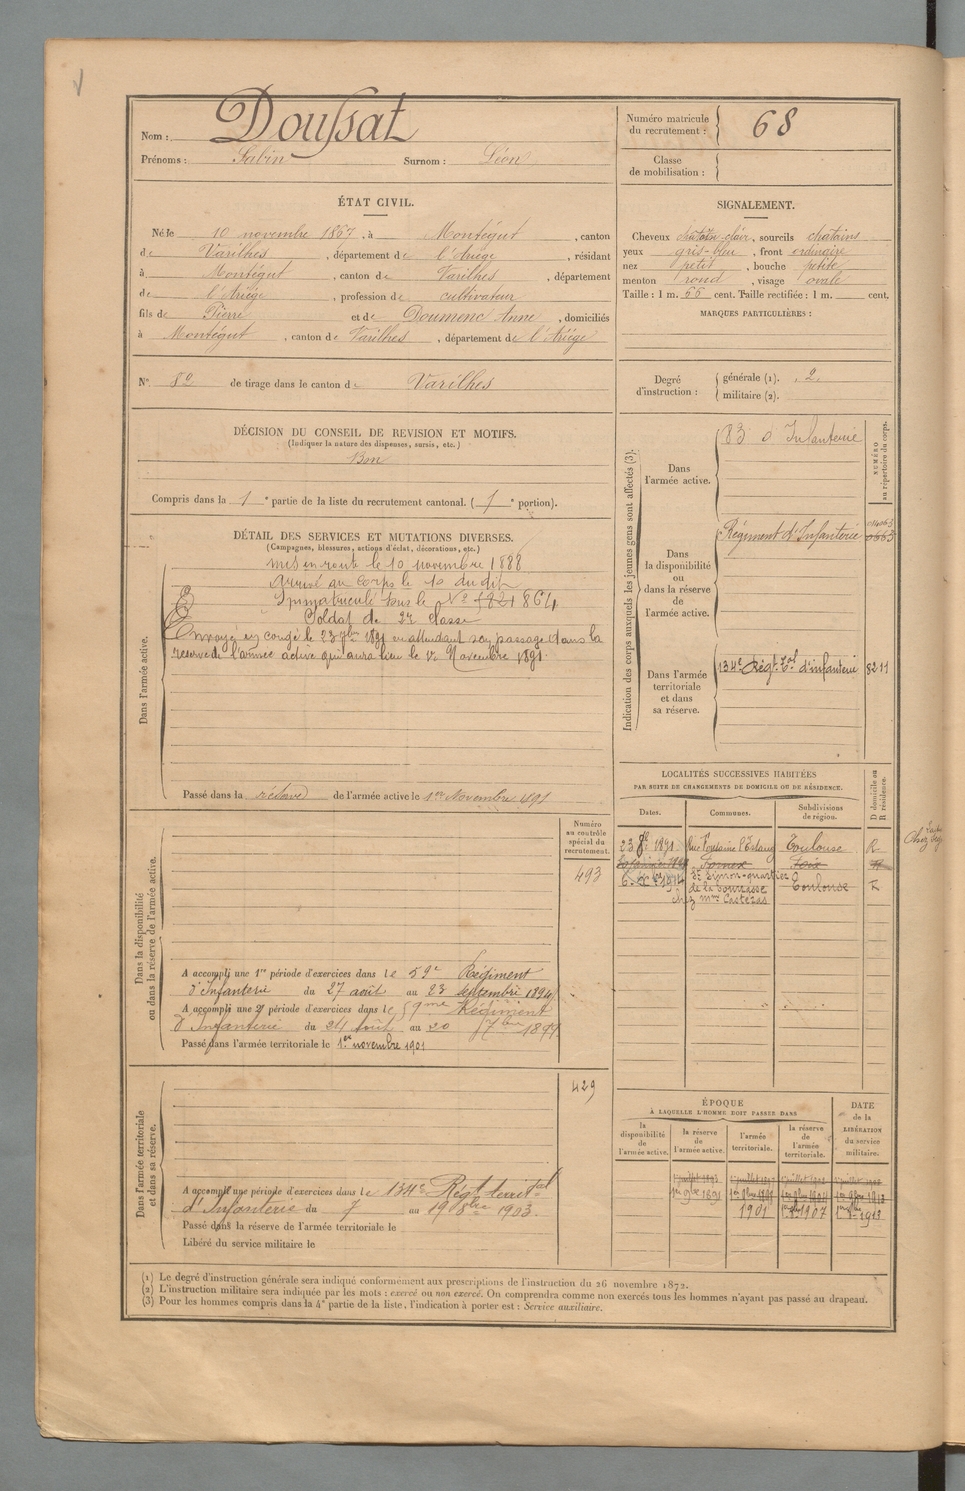 Nom : Doussat
Prénoms : Sabin Surnom : Léon
Numéro matricule du recrutement : 68
Classe de mobilisation :
ÉTAT CIVIL.
Né le 10 novembre 1867, à Montégut, canton
de Varilhes, département de l'Ariége, résidant
à Montégut, canton de Varilhes, département
de l'Ariége, profession de cultivateur
fils de Pierre et de Doumenc Anne, domiciliés
à Montégut, canton de Varilhes, département de l'Ariége
N° 82 de tirage dans le canton de Varilhes
SIGNALEMENT.
Cheveux chatain-clair, sourcils chatains
yeux gris-bleu, front ordinaire
nez petit, bouche petite
menton rond, visage ovale
Taille : 1 m. 66 cent. Taille rectifiée : 1 m. cent.
MARQUES PARTICULIÈRES :
Degré d'instruction : générale (1). 2.
militaire (2).
DÉCISION DU CONSEIL DE REVISION ET MOTIFS.
(Indiquer la nature des dispenses, sursis, etc.)
Bon
Compris dans la 1e partie de la liste du recrutement cantonal. (1e portion).
DÉTAIL DES SERVICES ET MUTATIONS DIVERSES.
(Campagnes, blessures, actions d'éclat, décorations, etc.)
Dans l'armée active.
Mis en route le 10 novembre 1888
Arrivé au Corps le 10 du dit
Immatriculé sous le N° 864
Soldat de 2e classe
Envoyé en congé le 23 7bre 1891 en attendant son passage dans la
réserve de l'armée active qui aura lieu le 1er Novembre 1891.
Passé dans la réserve de l'armée active le 1er Novembre 1891
Indication des corps auxquels les jeunes gens sont affectés (3).
NUMÉRO au répertoire du corps.
Dans l'armée active.
83 d'Infanterie
Dans la disponibilité ou dans la réserve de l'armée active.
Régiment d'Infanterie
Dans l'armée territoriale et dans sa réserve.
134e Régt Tal d'infanterie 8211
LOCALITÉS SUCCESSIVES HABITÉES
PAR SUITE DE CHANGEMENTS DE DOMICILE OU DE RÉSIDENCE.
Dates. Communes. Subdivisions de région. D domicile ou R résidence.
23 1891 Toulouse R
Fornex Foix
St Simon-quartier
de la Toulouse
chez Mme Castéras
Chez
Dans la disponibilité ou dans la réserve de l'armée active.
Numéro au contrôle spécial du recrutement.
493
A accompli une 1re période d'exercices dans le 59e Régiment
d'Infanterie du 27 août au 23 septembre 1894
A accompli une 2e période d'exercices dans le 59me Régiment
d'Infanterie du 24 août au 20 7bre 1897
Passé dans l'armée territoriale le 1er novembre 1901
Dans l'armée territoriale et dans sa réserve.
429
A accompli une période d'exercices dans le 134e Régt territal
d'Infanterie du 7 au 19 8bre 1903.
Passé dans la réserve de l'armée territoriale le
Libéré du service militaire le
ÉPOQUE
À LAQUELLE L'HOMME DOIT PASSER DANS
DATE de la LIBÉRATION du service militaire.
la disponibilité de l'armée active. la réserve de l'armée active. l'armée territoriale. la réserve de l'armée territoriale.
1901 1907 1913
(1) Le degré d'instruction générale sera indiqué conformément aux prescriptions de l'instruction du 26 novembre 1872.
(2) L'instruction militaire sera indiquée par les mots : exercé ou non exercé. On comprendra comme non exercés tous les hommes n'ayant pas passé au drapeau.
(3) Pour les hommes compris dans la 4e partie de la liste, l'indication à porter est : Service auxiliaire.